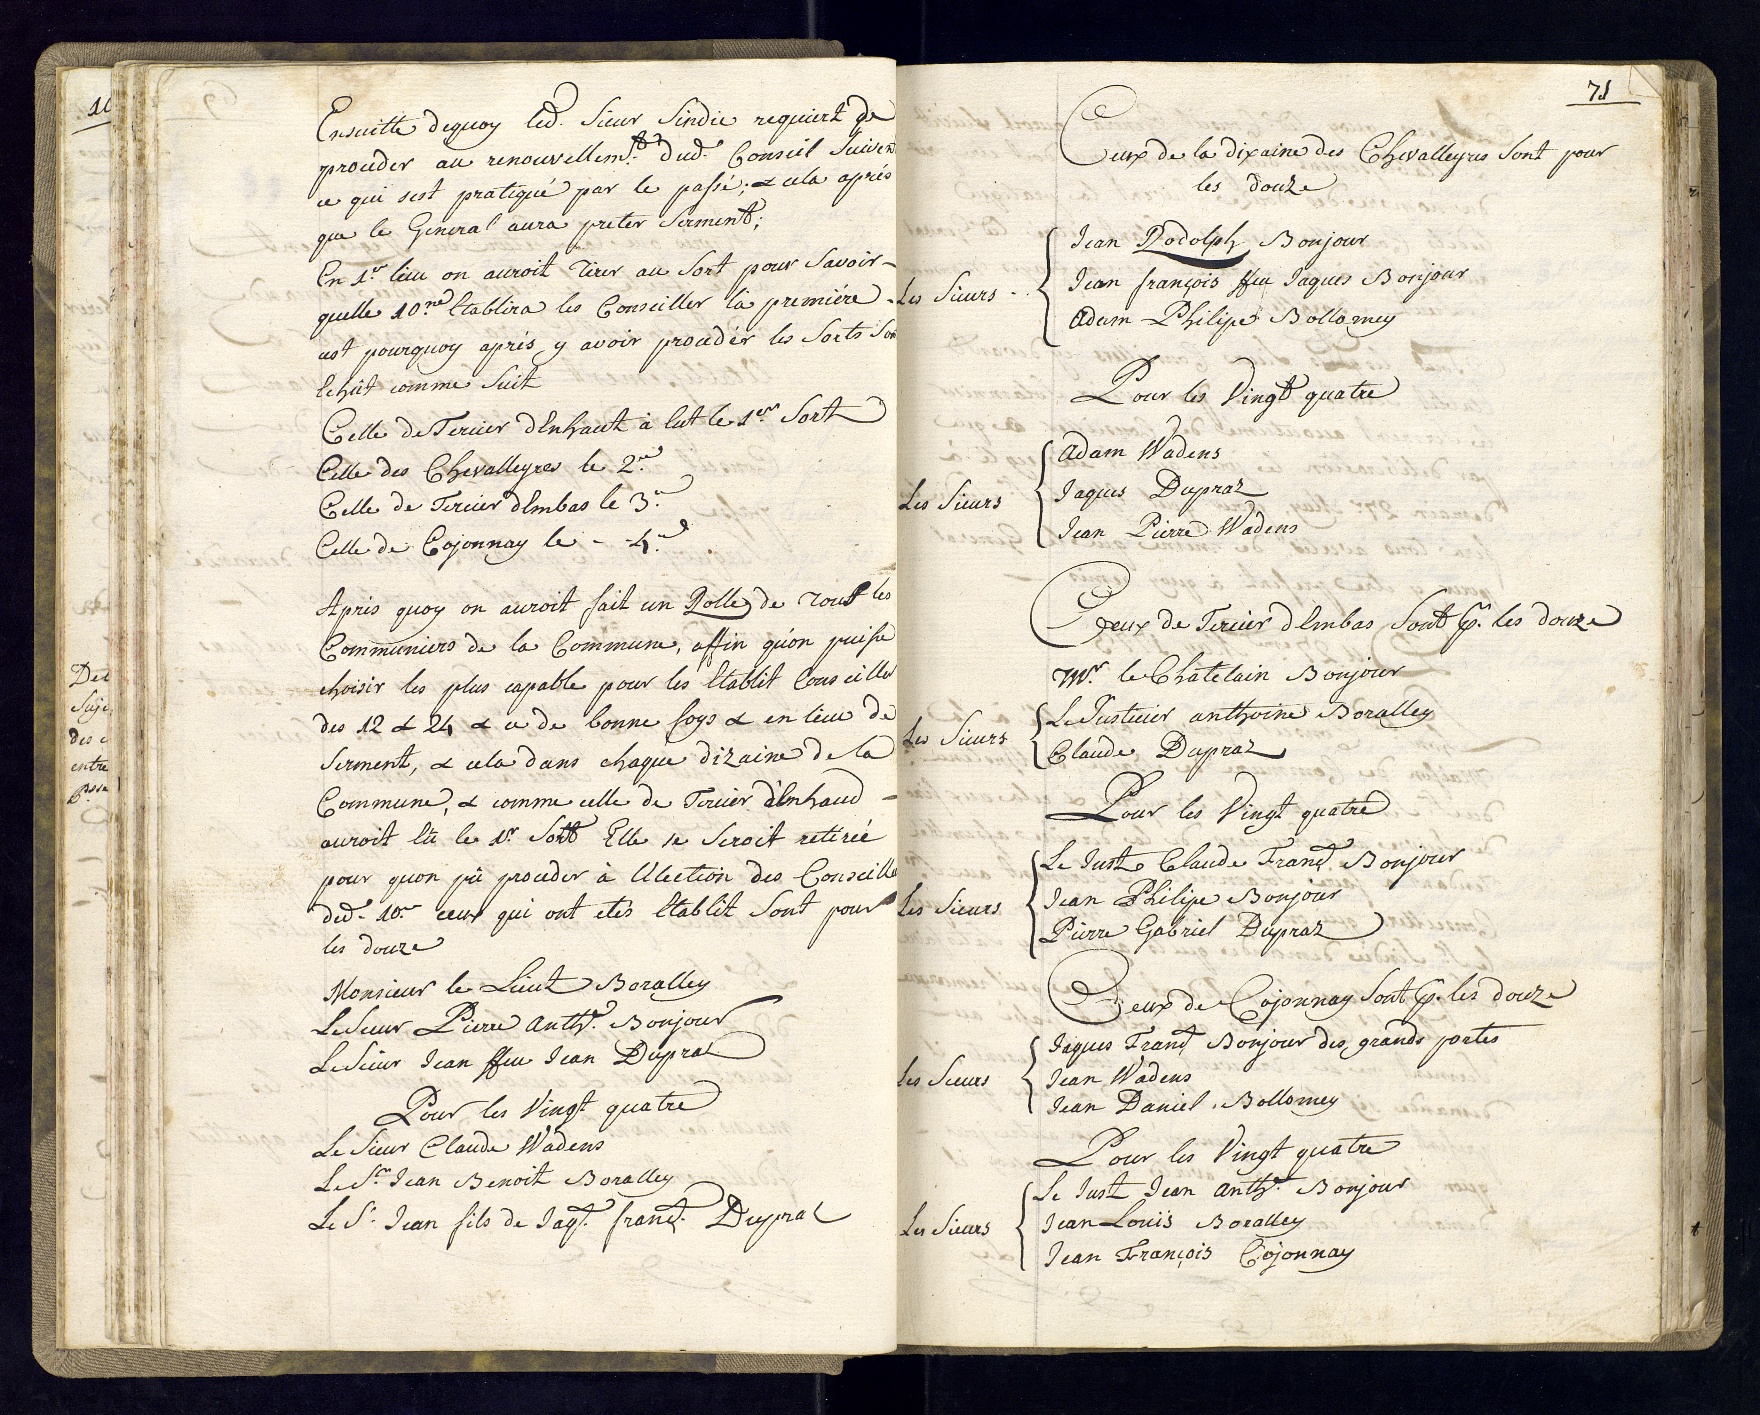 Ensuitte dequoy led. Sieur Sindic requiert de
proceder au renouvellemt. dud. Conseil Suiven
ce qui sest pratiqué par le passé; & cela aprés
que le General aura preter Serment;
En 1er lieu on auroit Tirer au Sort pour Savoir
quelle 10ne Etablira les Conseiller la premiére
cest pourquoy aprés y avoir procedér les Sorts Son
Echût comme Suit
Celle de Tercier dEnhaut à Eut le 1er Sort
Celle des Chevalleyres le 2e
Celle de Tercier dEmbas le 3e
Celle de Cojonnay le - - 4e
Apris quoy on auroit fait un Rolle de Tous les
Communiers de la Commune, affin quon puisse
choisir les plus capable pour les Etablit Conseiller
des 12 & 24 & ce de bonne foys & en lieu de
Serment, & cela dans chaque dizaine de la
Commune, & comme celle de Tercier dEnhaud
auroit Eü le 1er Sort Elle se Seroit retirée
pour quon pû proceder à l'Election des Conseille
ded. 10e ceux qui ont etés Etablit Sont pour
les douze
Monsieur le Lieut Boralley
Le Sieur Pierre Anthe. Bonjour
Le Sieur Jean ffeu Jean Dupraz
Pour les Vingt quatre
Le Sieur Claude Wadens
Le Sr Jean Benoit Boralley
Le Sr. Jean fils de Jaqs. franç. Dupraz
71
Ceux de la dixaine des Chevalleyres Sont pour
les douze
Jean Rodolph Bonjour
Les Sieurs Jean françois ffeu Jaques Bonjour
Adam Philipe Bollomey
Pour les Vingt quatre
Adam Wadens
Les Sieurs Jaques Dupraz
Jean Pierre Wadens
Ceux de Tercier dEmbas Sont pr. les douze
Mr. le Châtelain Bonjour
Les Sieurs Le Justicier anthoine Boralley
Claude Dupraz
Pour les Vingt quatre
Le Just. Claude Franç. Bonjour
Les Sieurs Jean Philipe Bonjour
Pierre Gabriel Dupraz
Ceux de Cojonnay Sont pr. les douze
Jaques Franç Bonjour des grands portes
Les Sieurs Jean Wadens
Jean Daniel Bollomey
Pour les Vingt quatre
Le Just Jean Anthe. Bonjour
Les Sieurs Jean Louis Boralley
Jean François Cojonnay